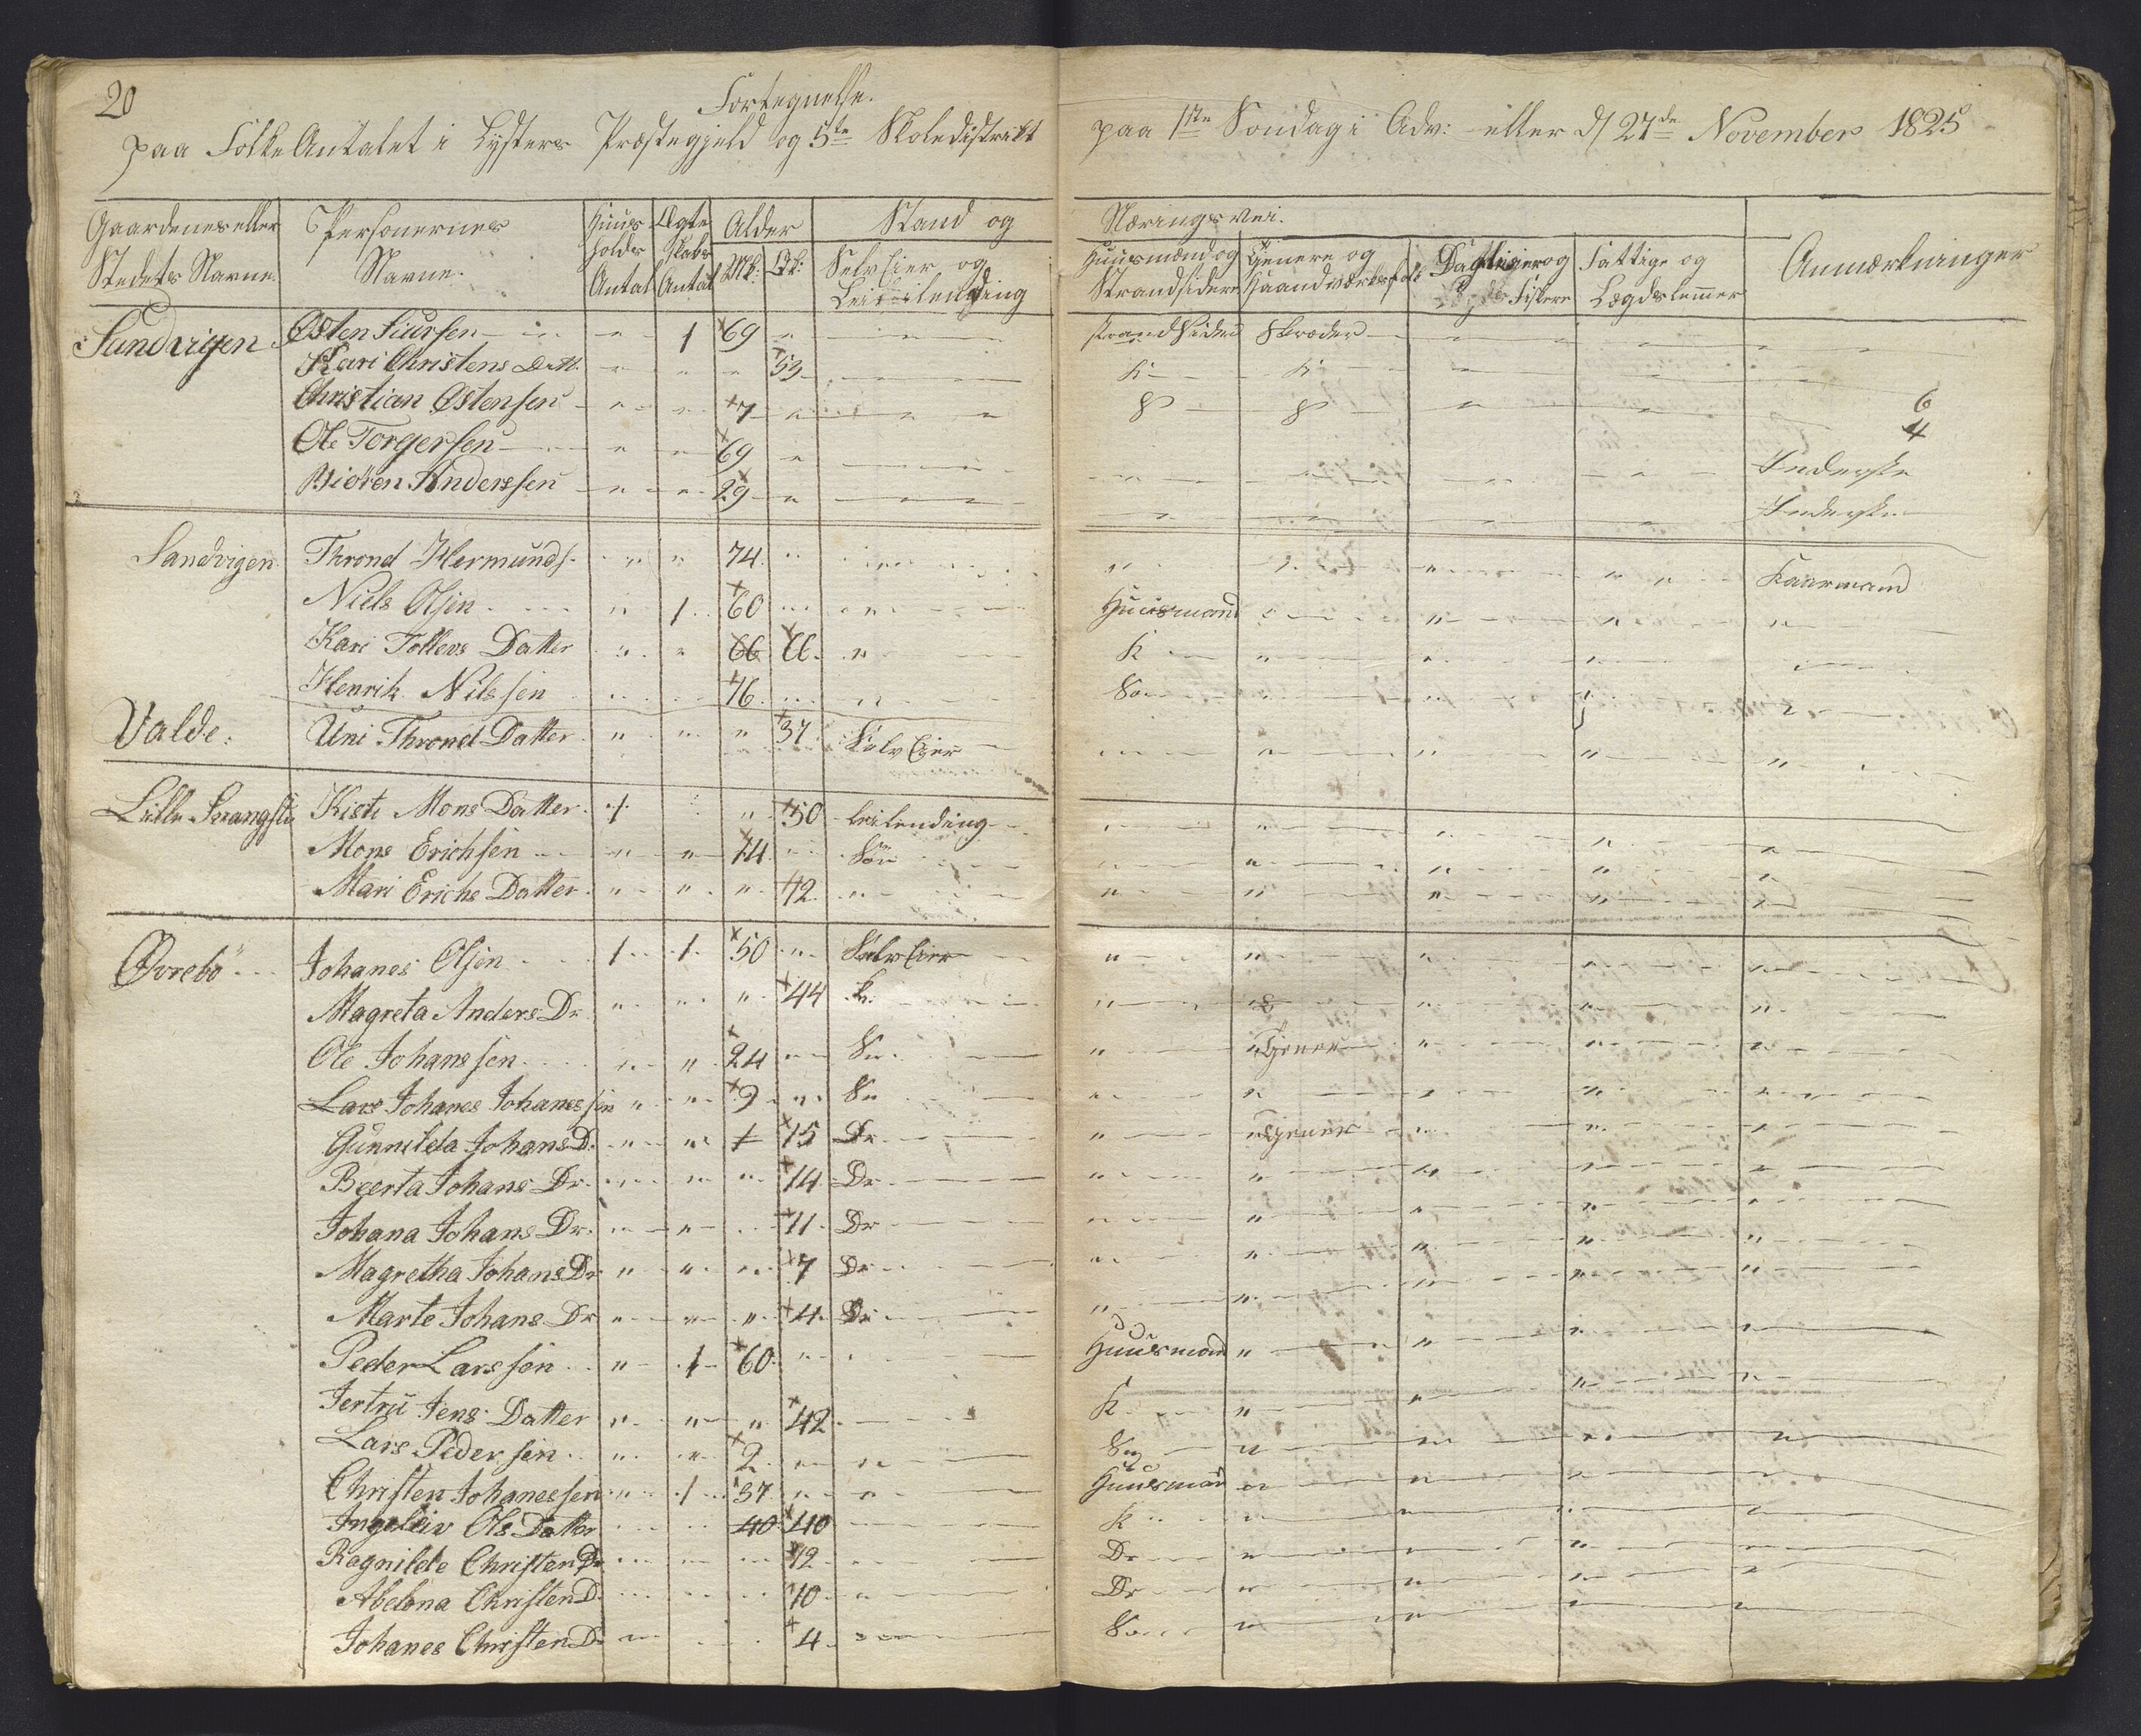 20
Fortegnelse
paa Folke Antalet i Lysters Præstegjeld og 5te Skoledistrikt paa 1ste Søndag i Adv: eller d/ 27de November 1825
Gaardenes eller Stedets Navne. Personernes Navne. Huus holds Antal Ægte skabs Antal Alder Mk: Qk: Stand og Selv Eier og Leilending Næringsvei. Huusmænd og Strandsidere Tjenere og Haandværksfolk Daglejer og Fiskere Fattige og Lægdslemmer Anmærkninger
Sandvigen Østen Siursen 1 69 Strandsider Skræder
Kari Christens Datt. 53 K K
Christian Østensen 7 S S 6
4
Ole Torgersen 69 Inderste
Biören Anderssen 29 Inderste
Sandvigen Thrond Hermunds. 74 Kaarmand
Niels Olsen 1 60 Huusmand
Kari Tollevs Datter 66 66 K
Henrik Nilssen 16 Søn
Valde: Uni Thrond Datter 37 Selv Eier
Lille Kisti Mons Datter 1 50 Leilending
Mons Erichsen 14 Søn
Mari Erichs Datter 12
Øvrebö Johanes Olsen 1 1 50 Selv Eier
Magreta Anders Dr 44 K.
Ole Johanssen 24 Sn Tjener
Lars Johanes Johanessen 9 Sn
Gunnilda Johans D. 15 Dr Tjener
Beerta Johans Dr 14 Dr
Johana Johans Dr. 11 Dr
Magretha Johans Dr 7 Dr
Marte Johans Dr 4 Dr
Peder Larssen 1 60 Huusmand
Jertru Jens Datter 42 K
Lars Pedersen 2 Søn
Christen Johanessen 1 37 Huusmand
Ingeleiv Ols Datter 40 40 K
Ragnilde Christen Dr 12 Dr
Abelona Christen D. 10 Dr
Johanes Christen D. 4 Søn